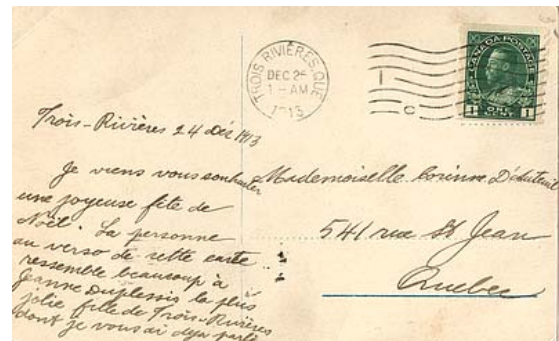 TROIS RIVIÈRES, QUE
DEC 25
1 - AM
1913
I
C
CANADA POSTAGE
1 CENT 1
Trois-Rivières 24 déc 1913
Je viens vous souhaiter
une joyeuse fête de
Noël. La personne
au verso de cette carte
ressemble beaucoup à
Jeanne Duplessis la plus
jolie fille de Trois-Rivières
dont je vous ai déjà parlé
Mademoiselle Corinne
541 rue St Jean
Quebec